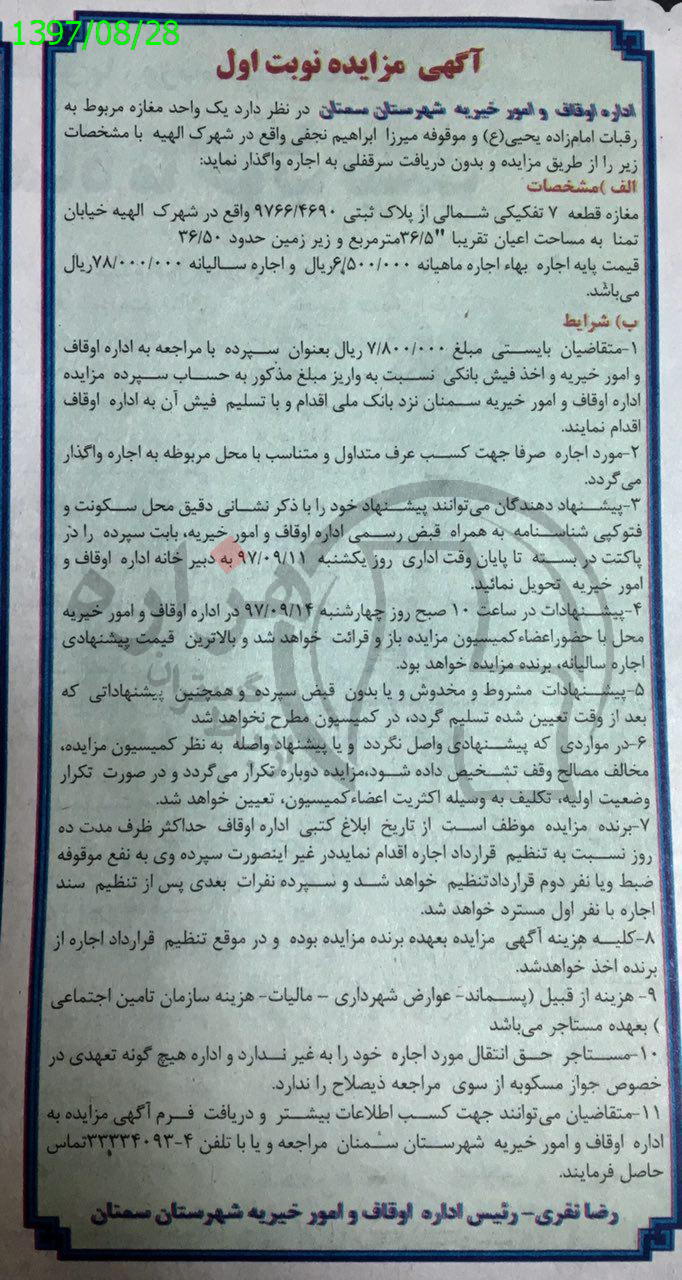 1397/08/28
آگهی مزایده نوبت اول
اداره اوقاف و امور خیریه شهرستان سمنان در نظر دارد یک واحد مغازه مربوط به
رقبات امامزاده یحیی(ع) و موقوفه میرزا ابراهیم نجفی واقع در شهرک الهیه با مشخصات
زیر را از طریق مزایده و بدون دریافت سرقفلی به اجاره واگذار نماید:
الف )مشخصات
مغازه قطعه ۷ تفکیکی شمالی از پلاک ثبتی ۹۷۶۶/۴۶۹۰ واقع در شهرک الهیه خیابان
تمنا به مساحت اعیان تقریبا "۳۶/۵مترمربع و زیر زمین حدود ۳۶/۵۰
قیمت پایه اجاره بهاء اجاره ماهیانه ۶٫۵۰۰/۰۰۰ریال و اجاره سالیانه ۷۸/۰۰۰/۰۰۰ریال
می‌باشد.
ب) شرایط
۱-متقاضیان بایستی مبلغ ۷/۸۰۰/۰۰۰ ریال بعنوان سپرده با مراجعه به اداره اوقاف
و امور خیریه و اخذ فیش بانکی نسبت به واریز مبلغ مذکور به حساب سپرده مزایده
اداره اوقاف و امور خیریه سمنان نزد بانک ملی اقدام و با تسلیم فیش آن به اداره اوقاف
اقدام نمایند.
۲-مورد اجاره صرفا جهت کسب عرف متداول و متناسب با محل مربوطه به اجاره واگذار
می‌گردد.
۳-پیشنهاد دهندگان می‌توانند پیشنهاد خود را با ذکر نشانی دقیق محل سکونت و
فتوکپی شناسنامه به همراه قبض رسمی اداره اوقاف و امور خیریه، بابت سپرده را در
پاکت در بسته تا پایان وقت اداری روز یکشنبه ۹۷/۰۹/۱۱ به دبیر خانه اداره اوقاف و
امور خیریه تحویل نمائید.
۴-پیشنهادات در ساعت ۱۰ صبح روز چهارشنبه ۹۷/۰۹/۱۴ در اداره اوقاف و امور خیریه
محل با حضوراعضاءکمیسیون مزایده باز و قرائت خواهد شد و بالاترین قیمت پیشنهادی
اجاره سالیانه، برنده مزایده خواهد بود.
۵-پیشنهادات مشروط و مخدوش و یا بدون قبض سپرده و همچنین پیشنهاداتی که
بعد از وقت تعیین شده تسلیم گردد، در کمیسیون مطرح نخواهد شد
۶-در مواردی که پیشنهادی واصل نگردد و یا پیشنهاد واصله به نظر کمیسیون مزایده،
مخالف مصالح وقف تشخیص داده شود،مزایده دوباره تکرار می‌گردد و در صورت تکرار
وضعیت اولیه، تکلیف به وسیله اکثریت اعضاءکمیسیون، تعیین خواهد شد.
۷-برنده مزایده موظف است از تاریخ ابلاغ کتبی اداره اوقاف حداکثر ظرف مدت ده
روز نسبت به تنظیم قرارداد اجاره اقدام نمایددر غیر اینصورت سپرده وی به نفع موقوفه
ضبط ویا نفر دوم قراردادتنظیم خواهد شد و سپرده نفرات بعدی پس از تنظیم سند
اجاره با نفر اول مسترد خواهد شد.
۸-کلیه هزینه آگهی مزایده بعهده برنده مزایده بوده و در موقع تنظیم قرارداد اجاره از
برنده اخذ خواهدشد.
۹- هزینه از قبیل (پسماند- عوارض شهرداری – مالیات- هزینه سازمان تامین اجتماعی
) بعهده مستاجر می‌باشد
۱۰-مستاجر حق انتقال مورد اجاره خود را به غیر ندارد و اداره هیچ گونه تعهدی در
خصوص جواز مسکوبه از سوی مراجعه ذیصلاح را ندارد.
۱۱-متقاضیان می‌توانند جهت کسب اطلاعات بیشتر و دریافت فرم آگهی مزایده به
اداره اوقاف و امور خیریه شهرستان سمنان مراجعه و یا با تلفن ۴-۳۳۳۳۴۰۹۳تماس
حاصل فرمایند.
رضا نفری- رئیس اداره اوقاف و امور خیریه شهرستان سمنان
هزاره